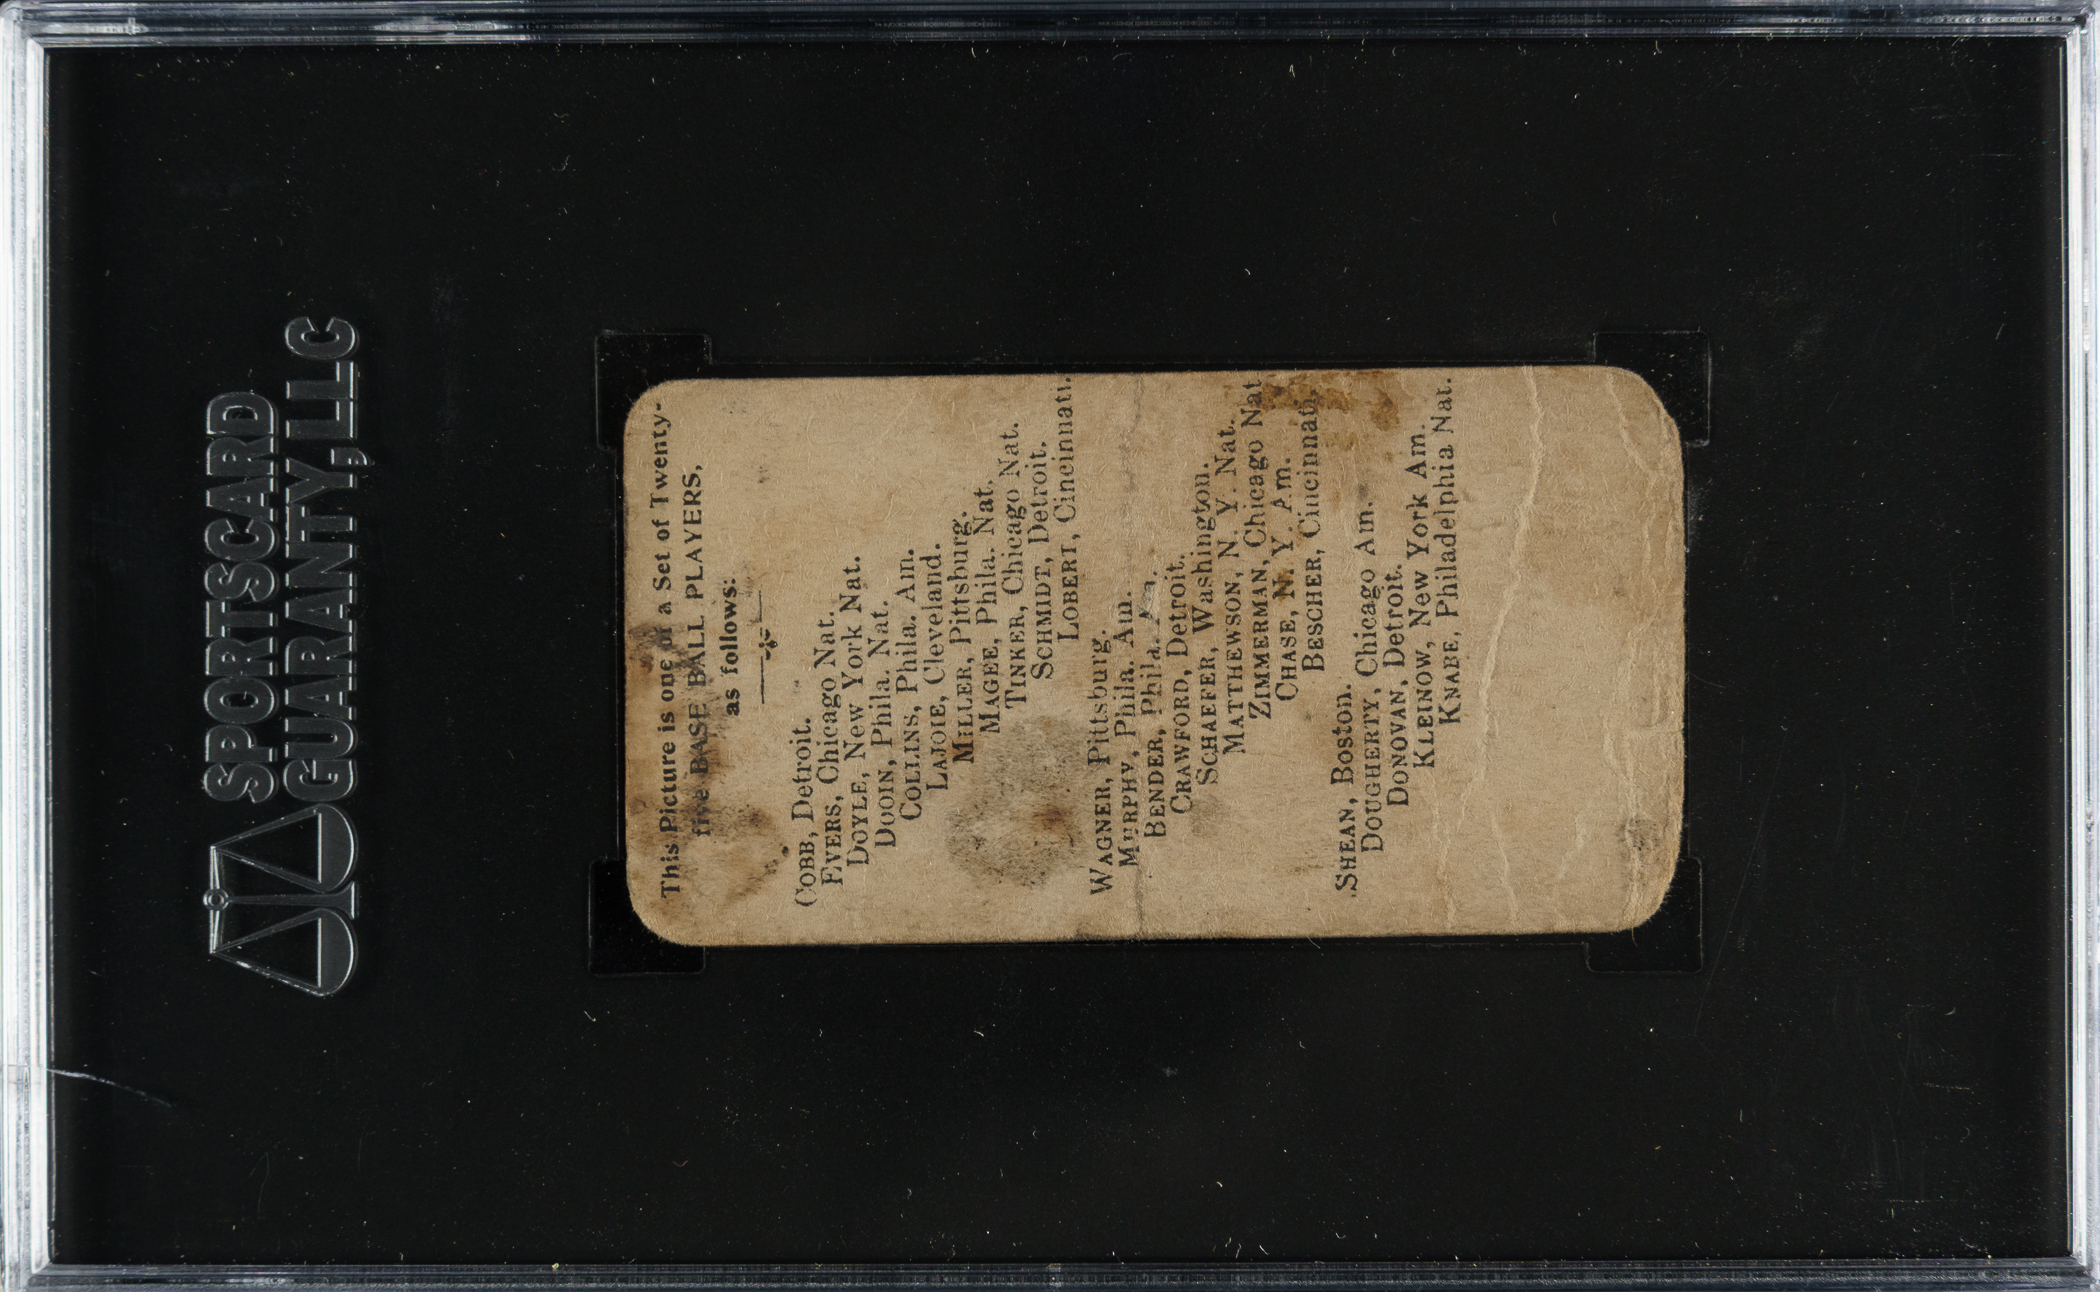 SPORTSCARD
GUARANTY, LLC
This Picture is one of a Set of Twenty-
five BASE BALL PLAYERS,
as follows:
COBB, Detroit.
EVERS, Chicago Nat.
DOYLE, New York Nat.
DOOIN, Phila. Nat.
COLLINS, Phila. Am.
LAJOIE, Cleveland.
MILLER, Pittsburg.
MAGEE, Phila. Nat.
TINKER, Chicago Nat.
SCHMIDT, Detroit.
LOBERT, Cincinnati.
WAGNER, Pittsburg.
MURPHY, Phila. Am.
BENDER, Phila. Am.
CRAWFORD, Detroit.
SCHAEFER, Washington.
MATTHEWSON, N. Y. Nat.
ZIMMERMAN, Chicago Nat
CHASE, N. Y. Am.
BESCHER, Cincinnati.
SHEAN, Boston.
DOUGHERTY, Chicago Am.
DONOVAN, Detroit.
KLEINOW, New York Am.
KNABE, Philadelphia Nat.